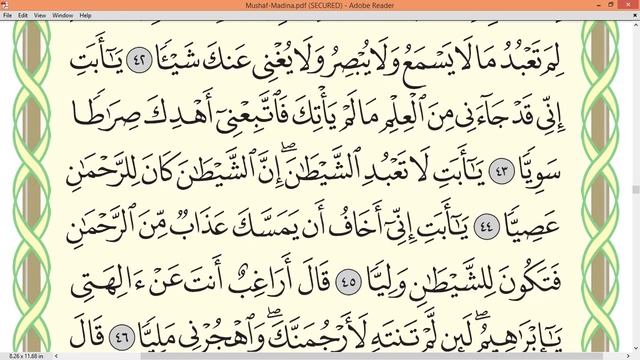 Mushaf-Madina.pdf (SECURED) - Adobe Reader
File Edit View Window Help
لِمَ تَعْبُدُ مَا لَا يَسْمَعُ وَلَا يُبْصِرُ وَلَا يُغْنِي عَنكَ شَيْـًٔا ٤٢ يَـٰٓأَبَتِ
إِنِّي قَدْ جَآءَنِي مِنَ ٱلْعِلْمِ مَا لَمْ يَأْتِكَ فَٱتَّبِعْنِيٓ أَهْدِكَ صِرَٰطًا
سَوِيًّا ٤٣ يَـٰٓأَبَتِ لَا تَعْبُدِ ٱلشَّيْطَـٰنَ ۖ إِنَّ ٱلشَّيْطَـٰنَ كَانَ لِلرَّحْمَـٰنِ
عَصِيًّا ٤٤ يَـٰٓأَبَتِ إِنِّيٓ أَخَافُ أَن يَمَسَّكَ عَذَابٌ مِّنَ ٱلرَّحْمَـٰنِ
فَتَكُونَ لِلشَّيْطَـٰنِ وَلِيًّا ٤٥ قَالَ أَرَاغِبٌ أَنتَ عَنْ ءَالِهَتِي
يَـٰٓإِبْرَٰهِيمُ ۖ لَئِن لَّمْ تَنتَهِ لَأَرْجُمَنَّكَ ۖ وَٱهْجُرْنِي مَلِيًّا ٤٦ قَالَ
8.26 x 11.68 in